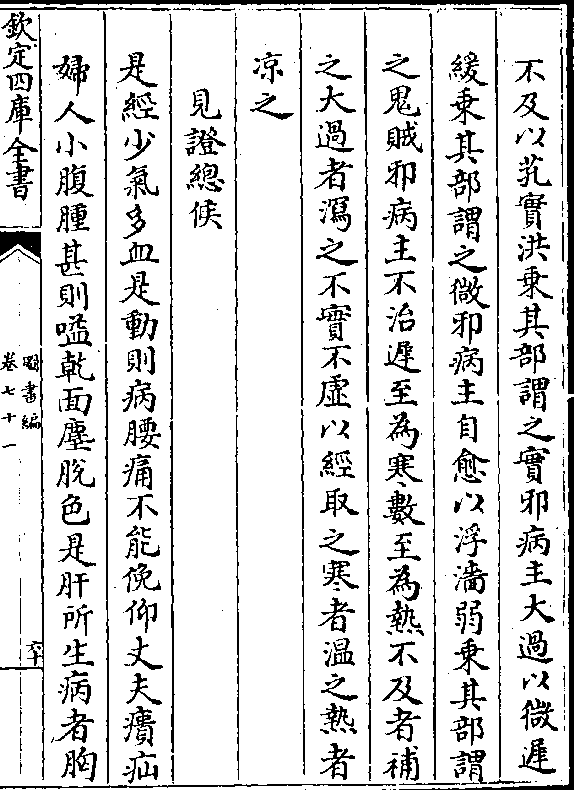 不及以芤實洪乗其部謂之實邪病主大過以微遲
緩乗其部謂之微邪病主自愈以浮濇弱乗其部謂
之鬼賊邪病主不治遲至為寒數至為熱不及者補
之大過者瀉之不實不虛以經取之寒者温之熱者
凉之
見證總候
是經少氣多血是動則病腰痛不能俛仰丈夫㿉疝
婦人小腹腫甚則嗌乾面塵脫色是肝所生病者胸
欽定四庫全書
圖書編
卷七十一
六十